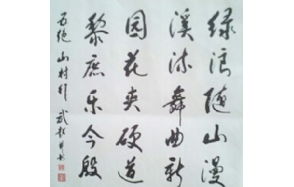 绿浪随山漫
溪流舞曲新
园花夹硬道
黎庶乐今殷
五绝 山村行